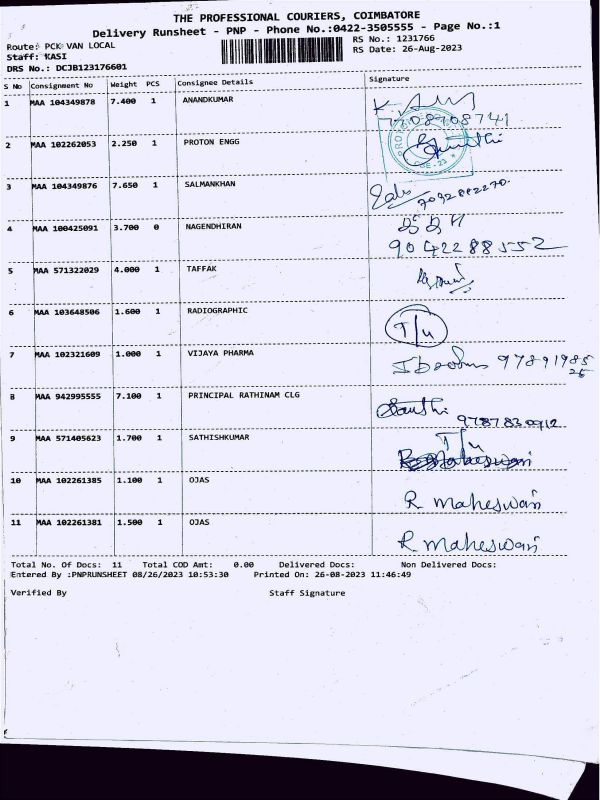 THE PROFESSIONAL COURIERS, COIMBATORE
Delivery Runsheet - PNP - Phone No.:0422-3505555 - Page No.:1
Route: PCK VAN LOCAL RS No.: 1231766
Staff: KASI RS Date: 26-Aug-2023
DRS No.: DCJB123176601
S No Consignment No Weight PCS Consignee Details Signature
1 MAA 104349878 7.400 1 ANANDKUMAR
7708908741
2 MAA 102262053 2.250 1 PROTON ENGG
3 MAA 104349876 7.650 1 SALMANKHAN
4 MAA 100425091 3.700 0 NAGENDHIRAN
9042288552
5 MAA 571322029 4.000 1 TAFFAK
6 MAA 103648506 1.600 1 RADIOGRAPHIC T/u
7 MAA 102321609 1.000 1 VIJAYA PHARMA 97891985
25
8 MAA 942995555 7.100 1 PRINCIPAL RATHINAM CLG
9787830912
9 MAA 571405623 1.700 1 SATHISHKUMAR T/u
10 MAA 102261385 1.100 1 OJAS R. Maheswari
11 MAA 102261381 1.500 1 OJAS R. Maheswari
Total No. Of Docs: 11 Total COD Amt: 0.00 Delivered Docs: Non Delivered Docs:
Entered By :PNPRUNSHEET 08/26/2023 10:53:30 Printed On: 26-08-2023 11:46:49
Verified By Staff Signature